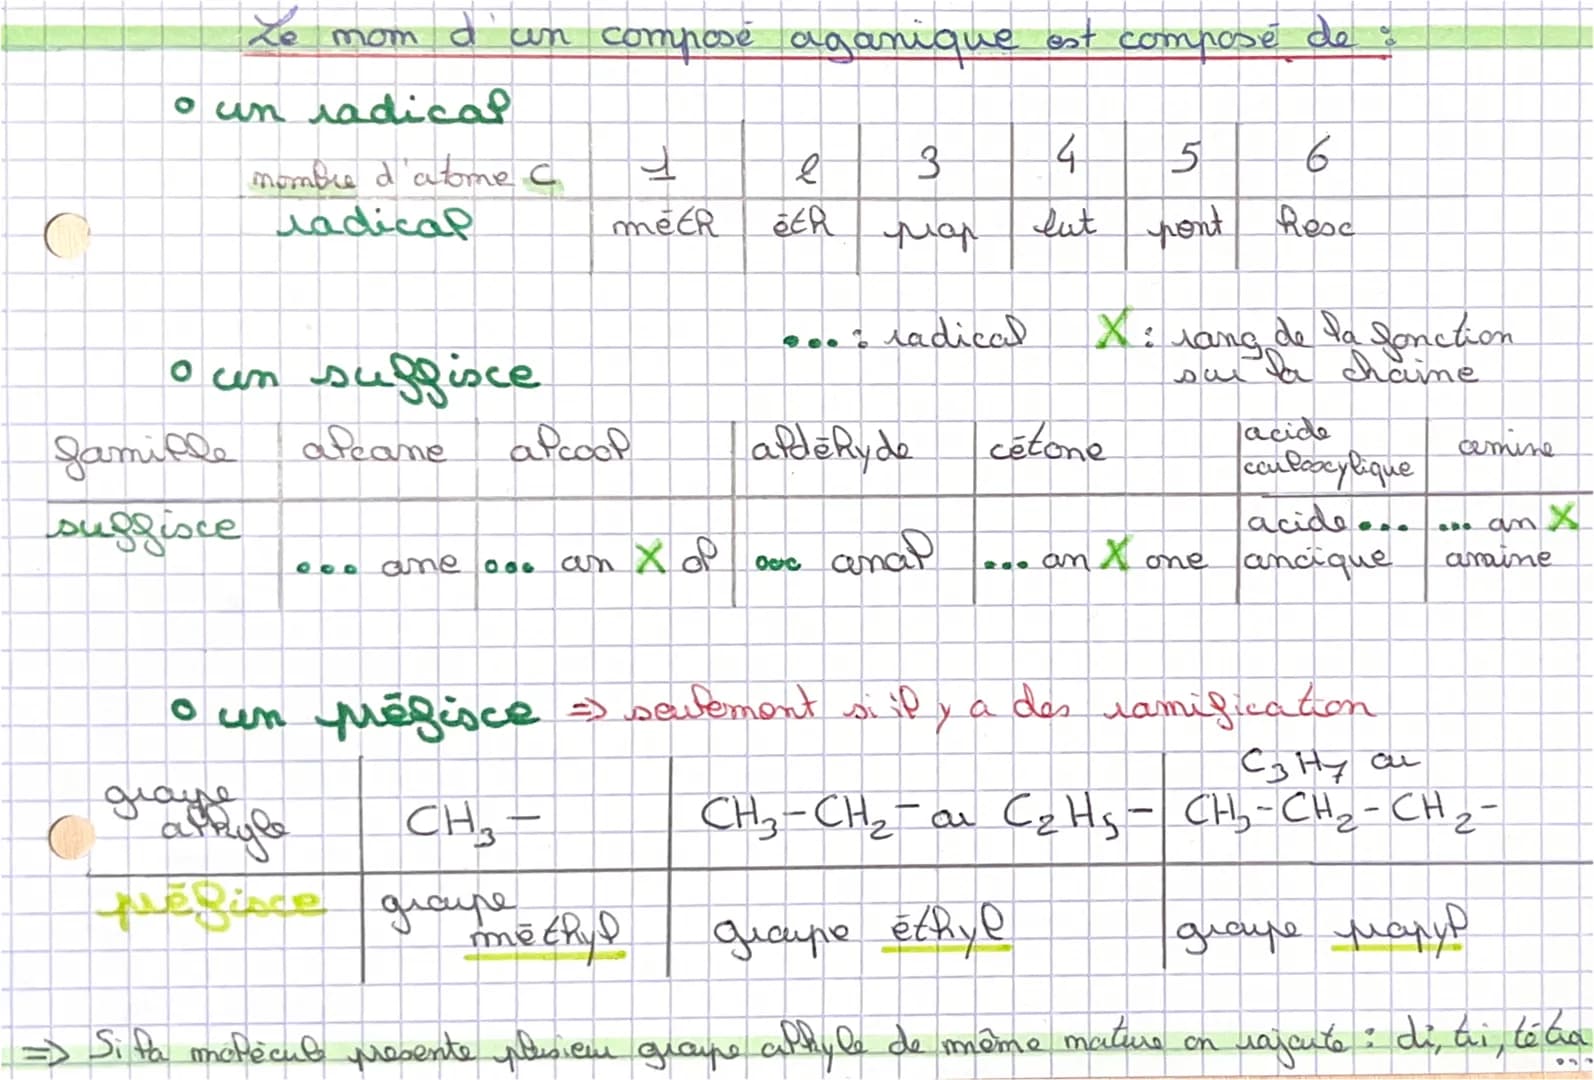 Le nom d'un composé organique est composé de :
• un radical
nombre d'atome C 1 2 3 4 5 6
radical méth éth prop but pent hex
...: radical X : rang de la fonction
sur la chaîne
• un suffixe
famille alcane alcool aldéhyde cétone acide carboxylique amine
suffixe ... ane ... an X ol ... anal ... an X one acide... anoïque ... an X amine
• un préfixe => seulement si il y a des ramification
groupe alkyle CH3- CH3-CH2- ou C2H5- C3H7 ou CH3-CH2-CH2-
préfixe groupe méthyl groupe éthyl groupe propyl
=> Si la molécule présente plusieu groupe alkyle de même nature on rajoute : di, tri, tétra ...